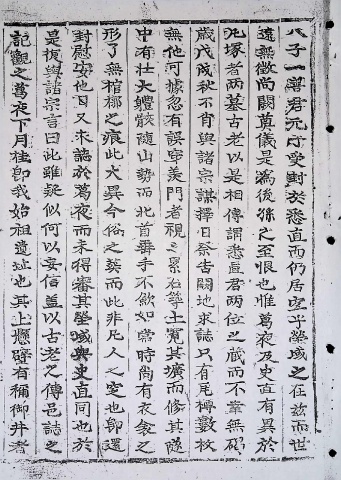 八子一善君元才受封於悉直而仍居焉乎塋域之在玆而世
遠無徵尚闕奠儀是爲後孫之至恨也惟葛夜及史直有異於
凡塚者两墓古老以是相傳謂悉直君两位之藏而不幸無碣
歲戊戌秋不肖與諸宗謀擇日祭告闢地求誌只有尾磚數枚
無他可據忽有誤穿羡門者視之累石築土寬其壙而修其隧
中有壮大軆骸随山勢而北首舞手不斂如常時尙有衣衾之
形了無棺槨之痕此大異今俗之葬而此非凡人之窆也卽還
封慰安他日又求誌於葛夜而未得審其塋域與史直同也於
是復與諸宗言曰此雖疑似何以妄信盖以古老之傳邑誌之
記觀之葛夜下月桂卽我始祖遺址也其上懸壁有稱御井者